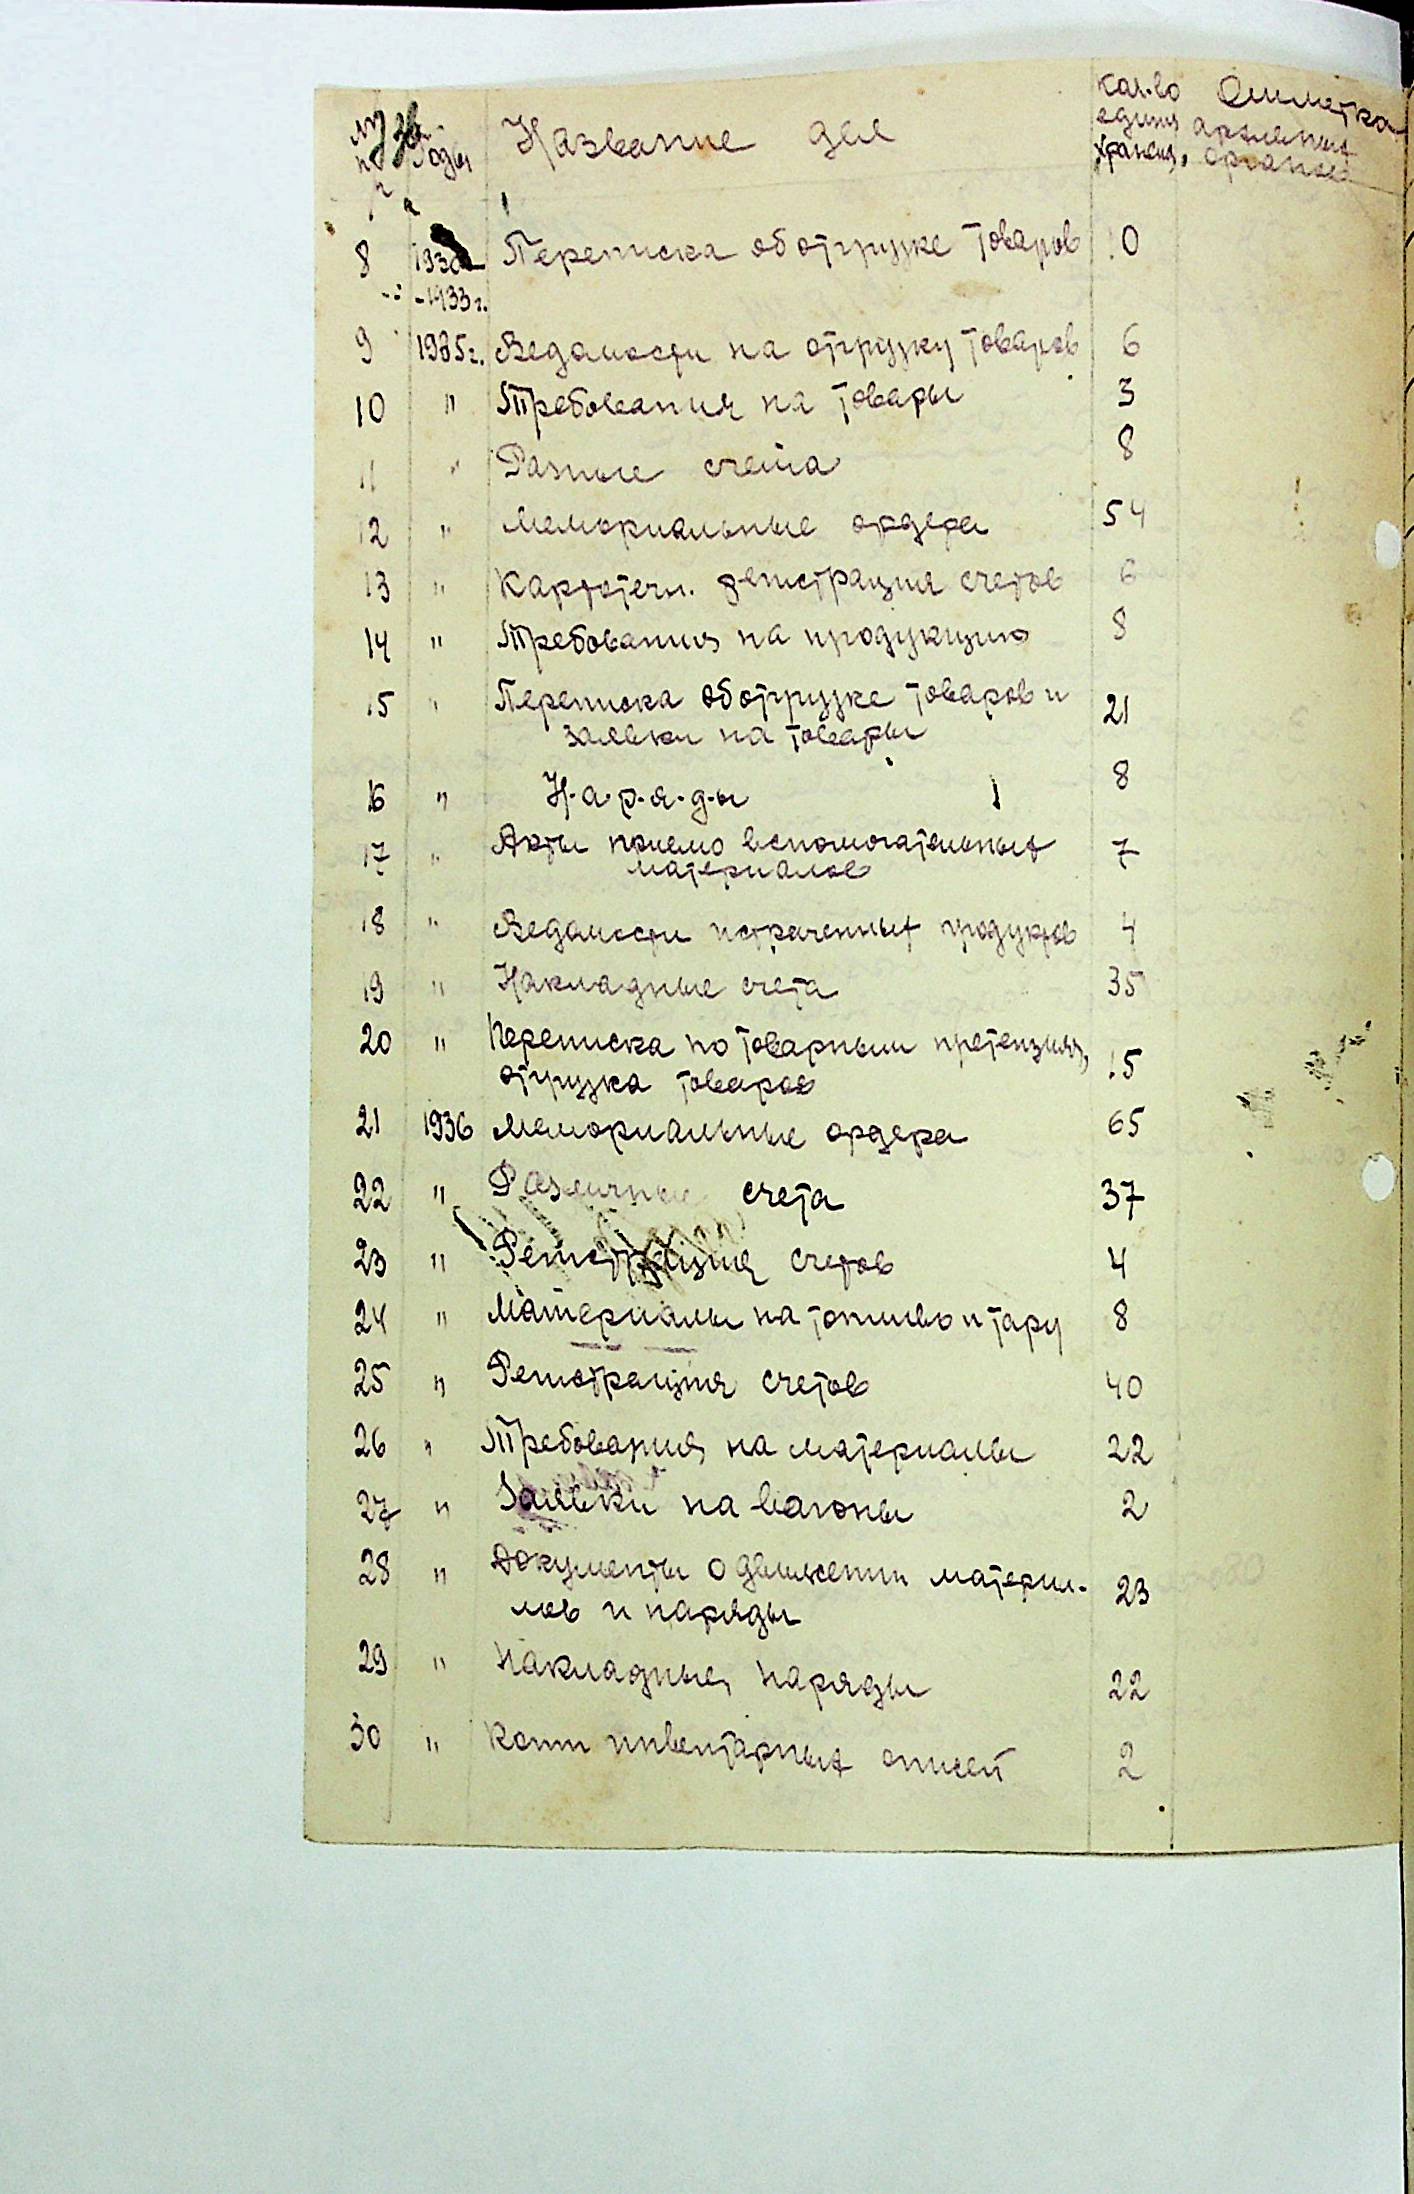 №№ Годы Название дел кол-во Отметка
пп единиц архивных
хранения, органов
8 1932 Переписка об отгрузке товаров 10
-1933 г.
9 1935 г. Ведомости на отгрузку товаров 6
10 " Требования на товары 3
11 " Разные счета 8
12 " Мемориальные ордера 54
13 " Картотечн. регистрация счетов 6
14 " Требования на продукцию 8
15 " Переписка об отгрузке товаров и 21
заявки на товары
16 " Н.а.р.я.д.ы 8
17 " Акты приемо вспомогательных 7
материалов
18 " Ведомости истраченных продуктов 4
19 " Накладные счета 35
20 " Переписка по товарным претензиям, 15
отгрузка товаров
21 1936 Мемориальные ордера 65
22 " Различные счета 37
23 " Регистрация счетов 4
24 " Материалы на топливо и тару 8
25 " Регистрация счетов 40
26 " Требования на материалы 22
27 " Заявки на вагоны 2
28 " Документы о движении материа- 23
лов и наряды
29 " Накладные, наряды 22
30 " Копии инвентарных описей 2